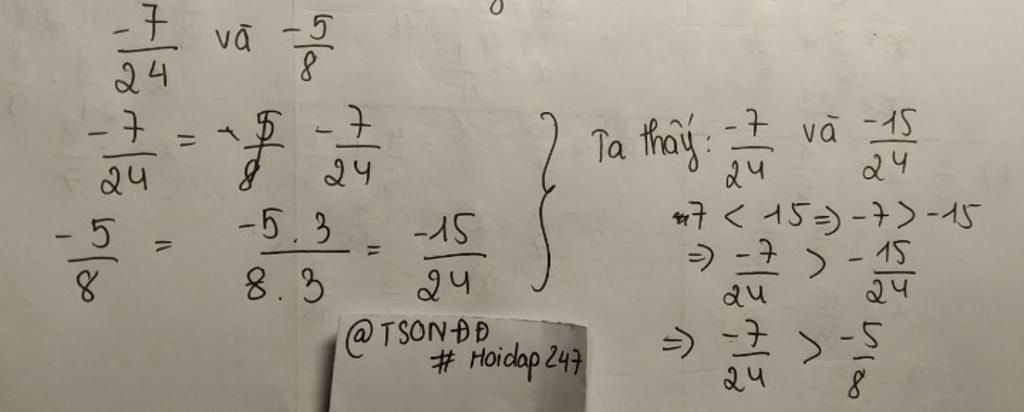 -7/24 và -5/8
-7/24 = -7/24
-5/8 = -5.3/8.3 = -15/24
} Ta thấy: -7/24 và -15/24
7 < 15 => -7 > -15
=> -7/24 > -15/24
=> -7/24 > -5/8
@TSONĐĐ
# Hoidap247